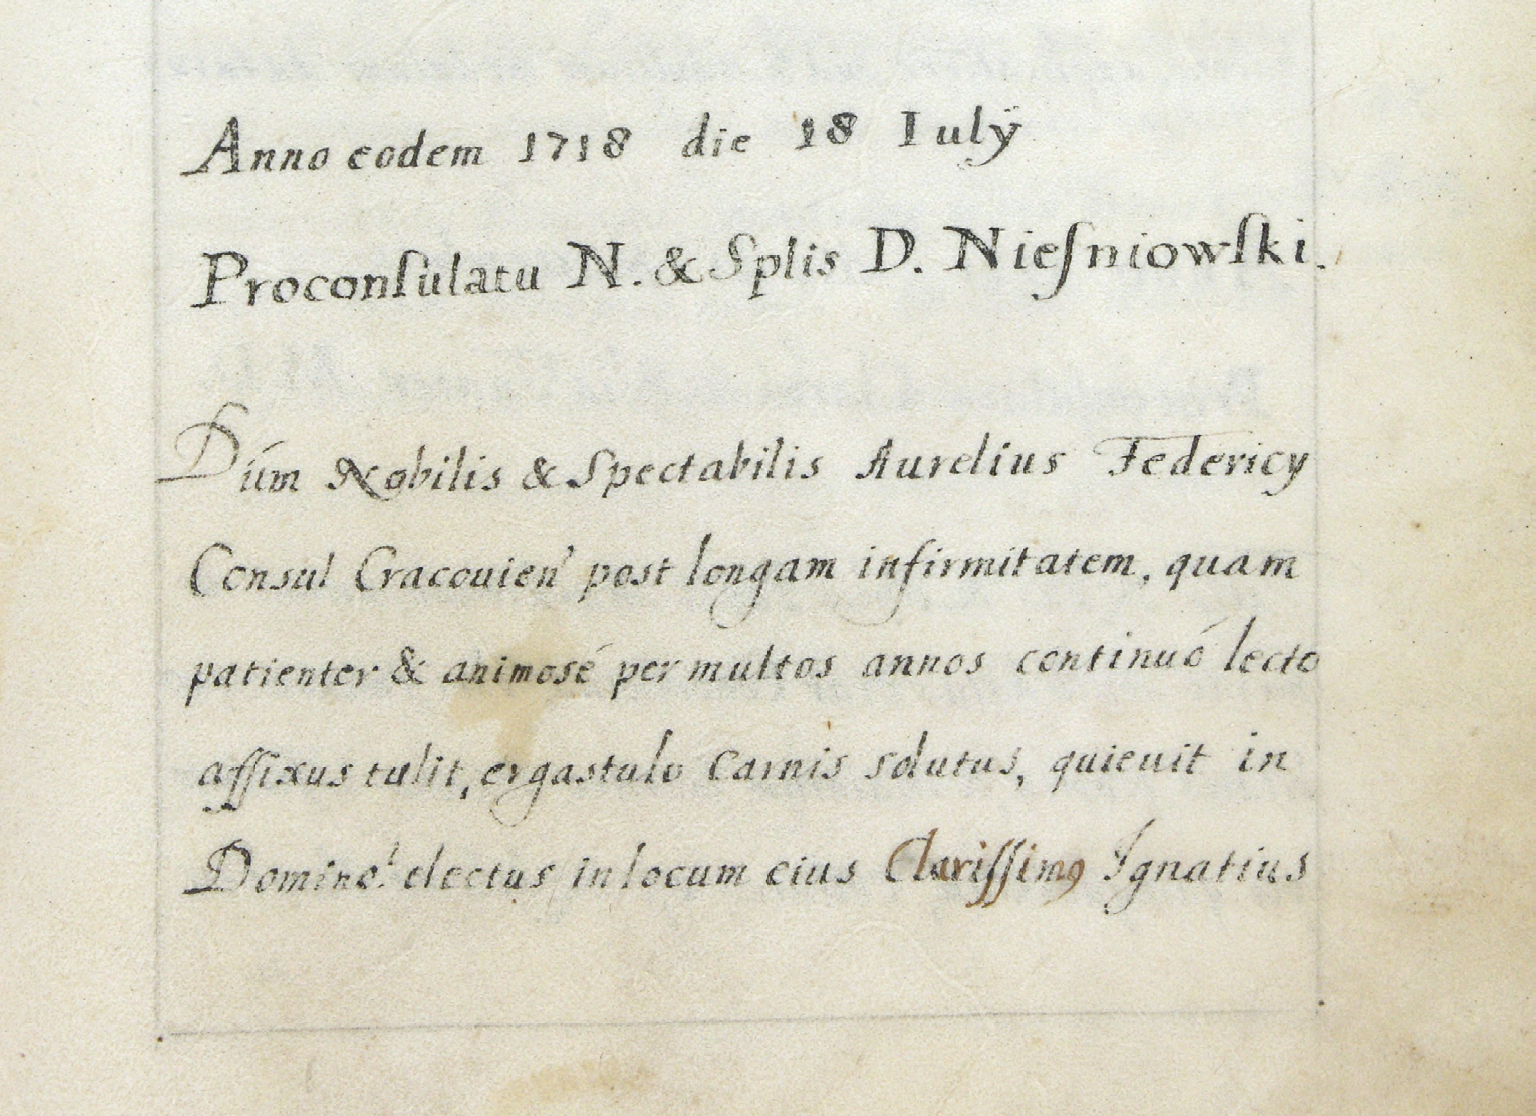 Anno eodem 1718 die 18 Iulÿ
Proconſulatu N. & Splis D. Nieſniowſki.
Dúm Nobilis & Spectabilis Aurelius Federicy
Consul Cracouien' post longam infirmitatem, quam
patienter & animosé per multos annos continuó lecto
affixus tulit, ergastulo Carnis solutus, quieuit in
Domino! electus in locum eius Clariſſimꝯ Ignatius